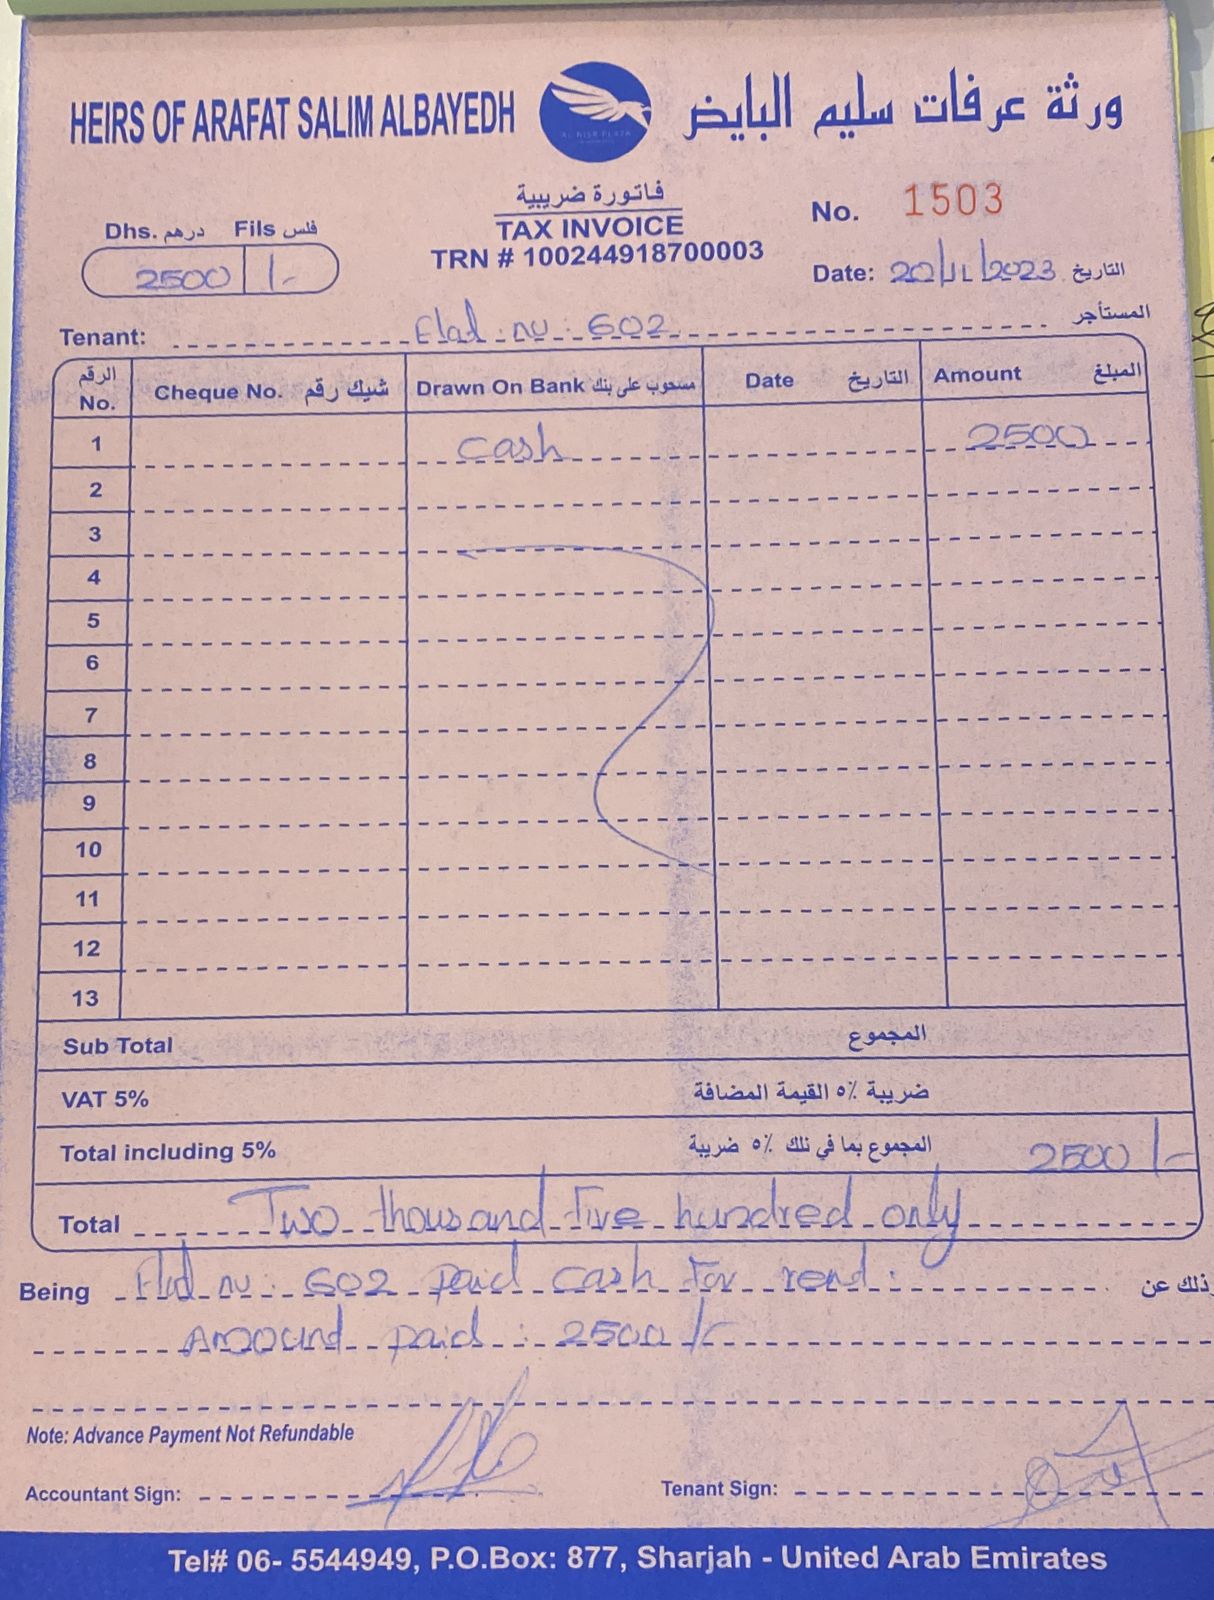 HEIRS OF ARAFAT SALIM ALBAYEDH
AL NISR PLAZA
ورثة عرفات سليم البايض
فاتورة ضريبية
TAX INVOICE
TRN # 100244918700003
No. 1503
Dhs. درهم Fils فلس
2500 /-
Date: 20/11/2023 التاريخ
Tenant: Flat nu : 602 المستأجر
الرقم No. Cheque No. شيك رقم Drawn On Bank مسحوب على بنك Date التاريخ Amount المبلغ
1 cash 2500
2
3
4
5
6
7
8
9
10
11
12
13
Sub Total المجموع
VAT 5% ضريبة ٥% القيمة المضافة
Total including 5% المجموع بما في ذلك ٥% ضريبة 2500 /-
Total Two thousand five hundred only
Being Flat nu : 602 paid cash for rent : وذلك عن
Amount paid : 2500 /-
Note: Advance Payment Not Refundable
Accountant Sign: Tenant Sign:
Tel# 06- 5544949, P.O.Box: 877, Sharjah - United Arab Emirates